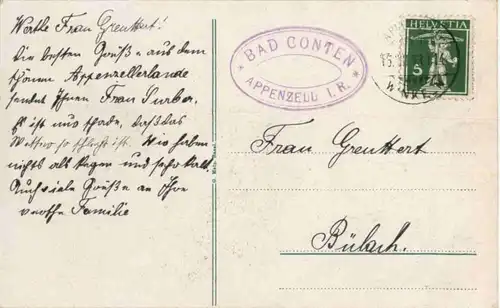 Werthe Frau Greuttert!
Die besten Grüße aus dem
schönen Appenzellerlande
sendet Ihnen Frau Surber.
Es ist nur schade, daß das
Wetter so schlecht ist. Wir haben
nichts als Regen und sehr kalt.
Auch viele Grüße an Ihre
werthe Familie
* BAD GONTEN *
APPENZELL I. R.
HELVETIA
5
Frau Greuttert
Bülach.